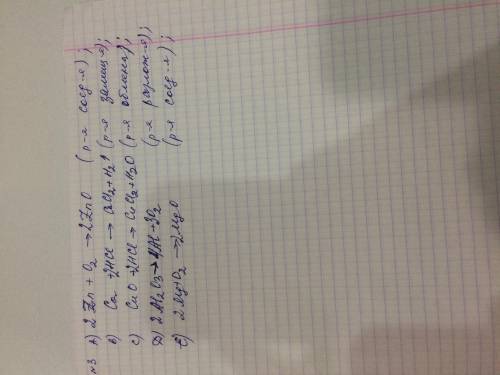 №3
А) 2Zn + O₂ → 2ZnO (р-я соед-я);
В) Ca + 2HCl → CaCl₂ + H₂↑ (р-я замещ-я);
С) CuO + 2HCl → CuCl₂ + H₂O (р-я обмена);
Д) 2Al₂O₃ → 4Al + 3O₂ (р-я разлож-я);
Е) 2Mg + O₂ → 2MgO (р-я соед-я);